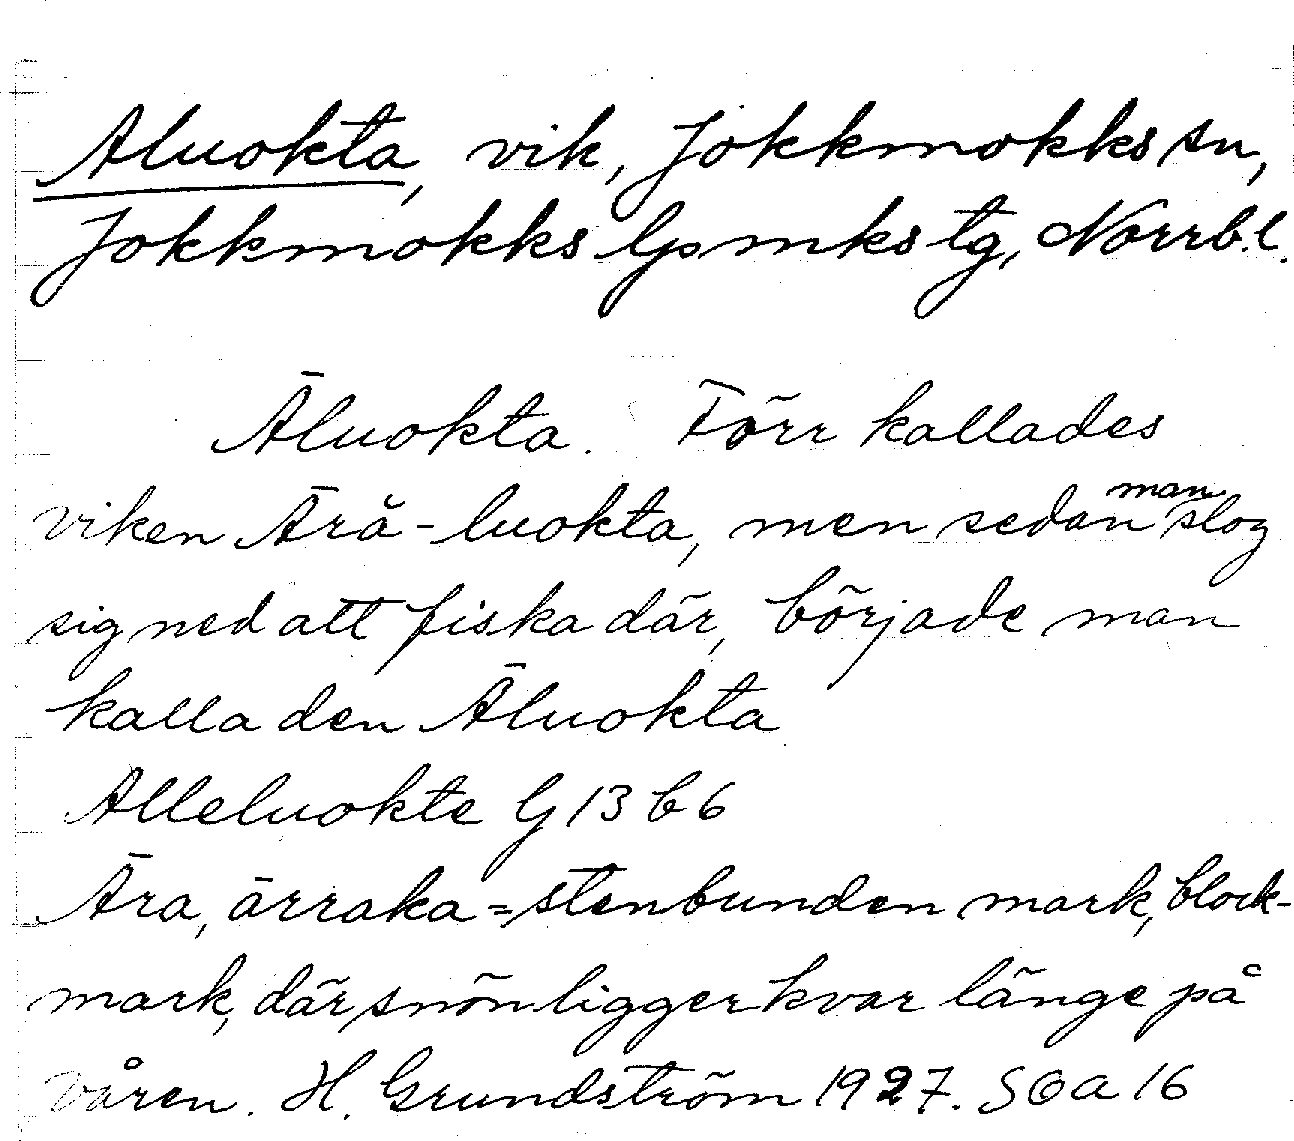 Aluokta, vik, Jokkmokks sn,
Jokkmokks lpmks tg, Norrb.l.
Āluokta. Förr kallades
viken Ārå-luokta, men sedan man slog
sig ned att fiska där, började man
kalla den Āluokta
Alleluokte G 13 b 6
Āra, ārraka = stenbunden mark, block-
mark, där snön ligger kvar länge på
våren. H. Grundström 1927. SOA 16